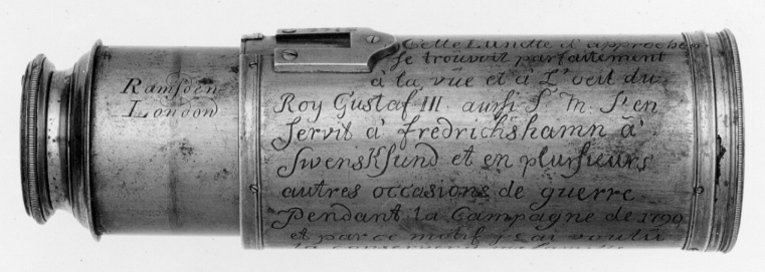 Ramsden
London
Cette Lunette d'approche
se trouvoit parfaitement
à la vüe et a L'oeil du
Roy Gustaf III. aussi S. M. S'en
servit à fredrichshamn à
Swensksund et en plusieurs
autres occasions de guerre
Pendant la Campagne de 1790
et par ce motif j'ai voulû
la conserver